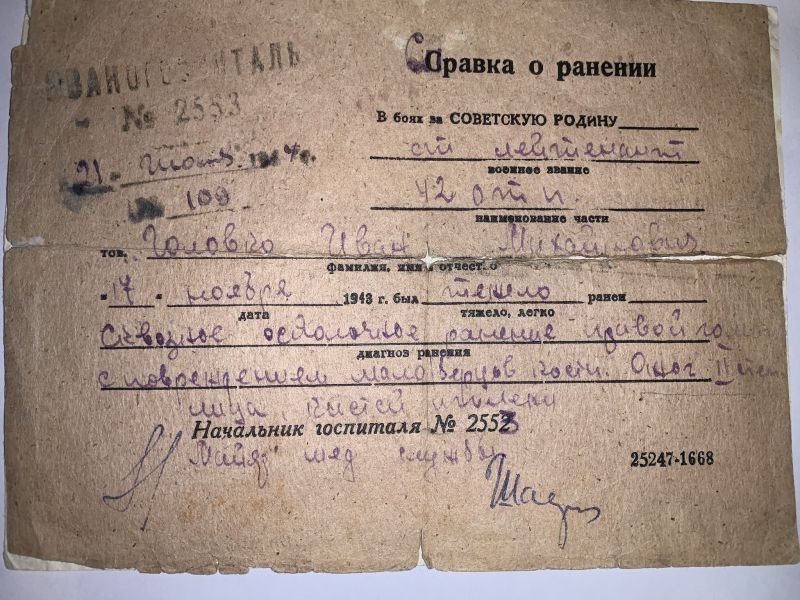 ЭВАКОГОСПИТАЛЬ
№ 2553
21 июня 1944 г.
№ 109
Справка о ранении
В боях за СОВЕТСКУЮ РОДИНУ
ст лейтенант
военное звание
42 отп.
наименование части
тов. Головко Иван Михайлович
фамилия, имя, отчество
"17" ноября 1943 г. был тяжело ранен
дата тяжело, легко
Сквозное осколочное ранение правой
диагноз ранения
с повреждением мало берцов кости. Ожог II степ
лица, кистей
Начальник госпиталя № 2553
Майор мед службы
25247-1668